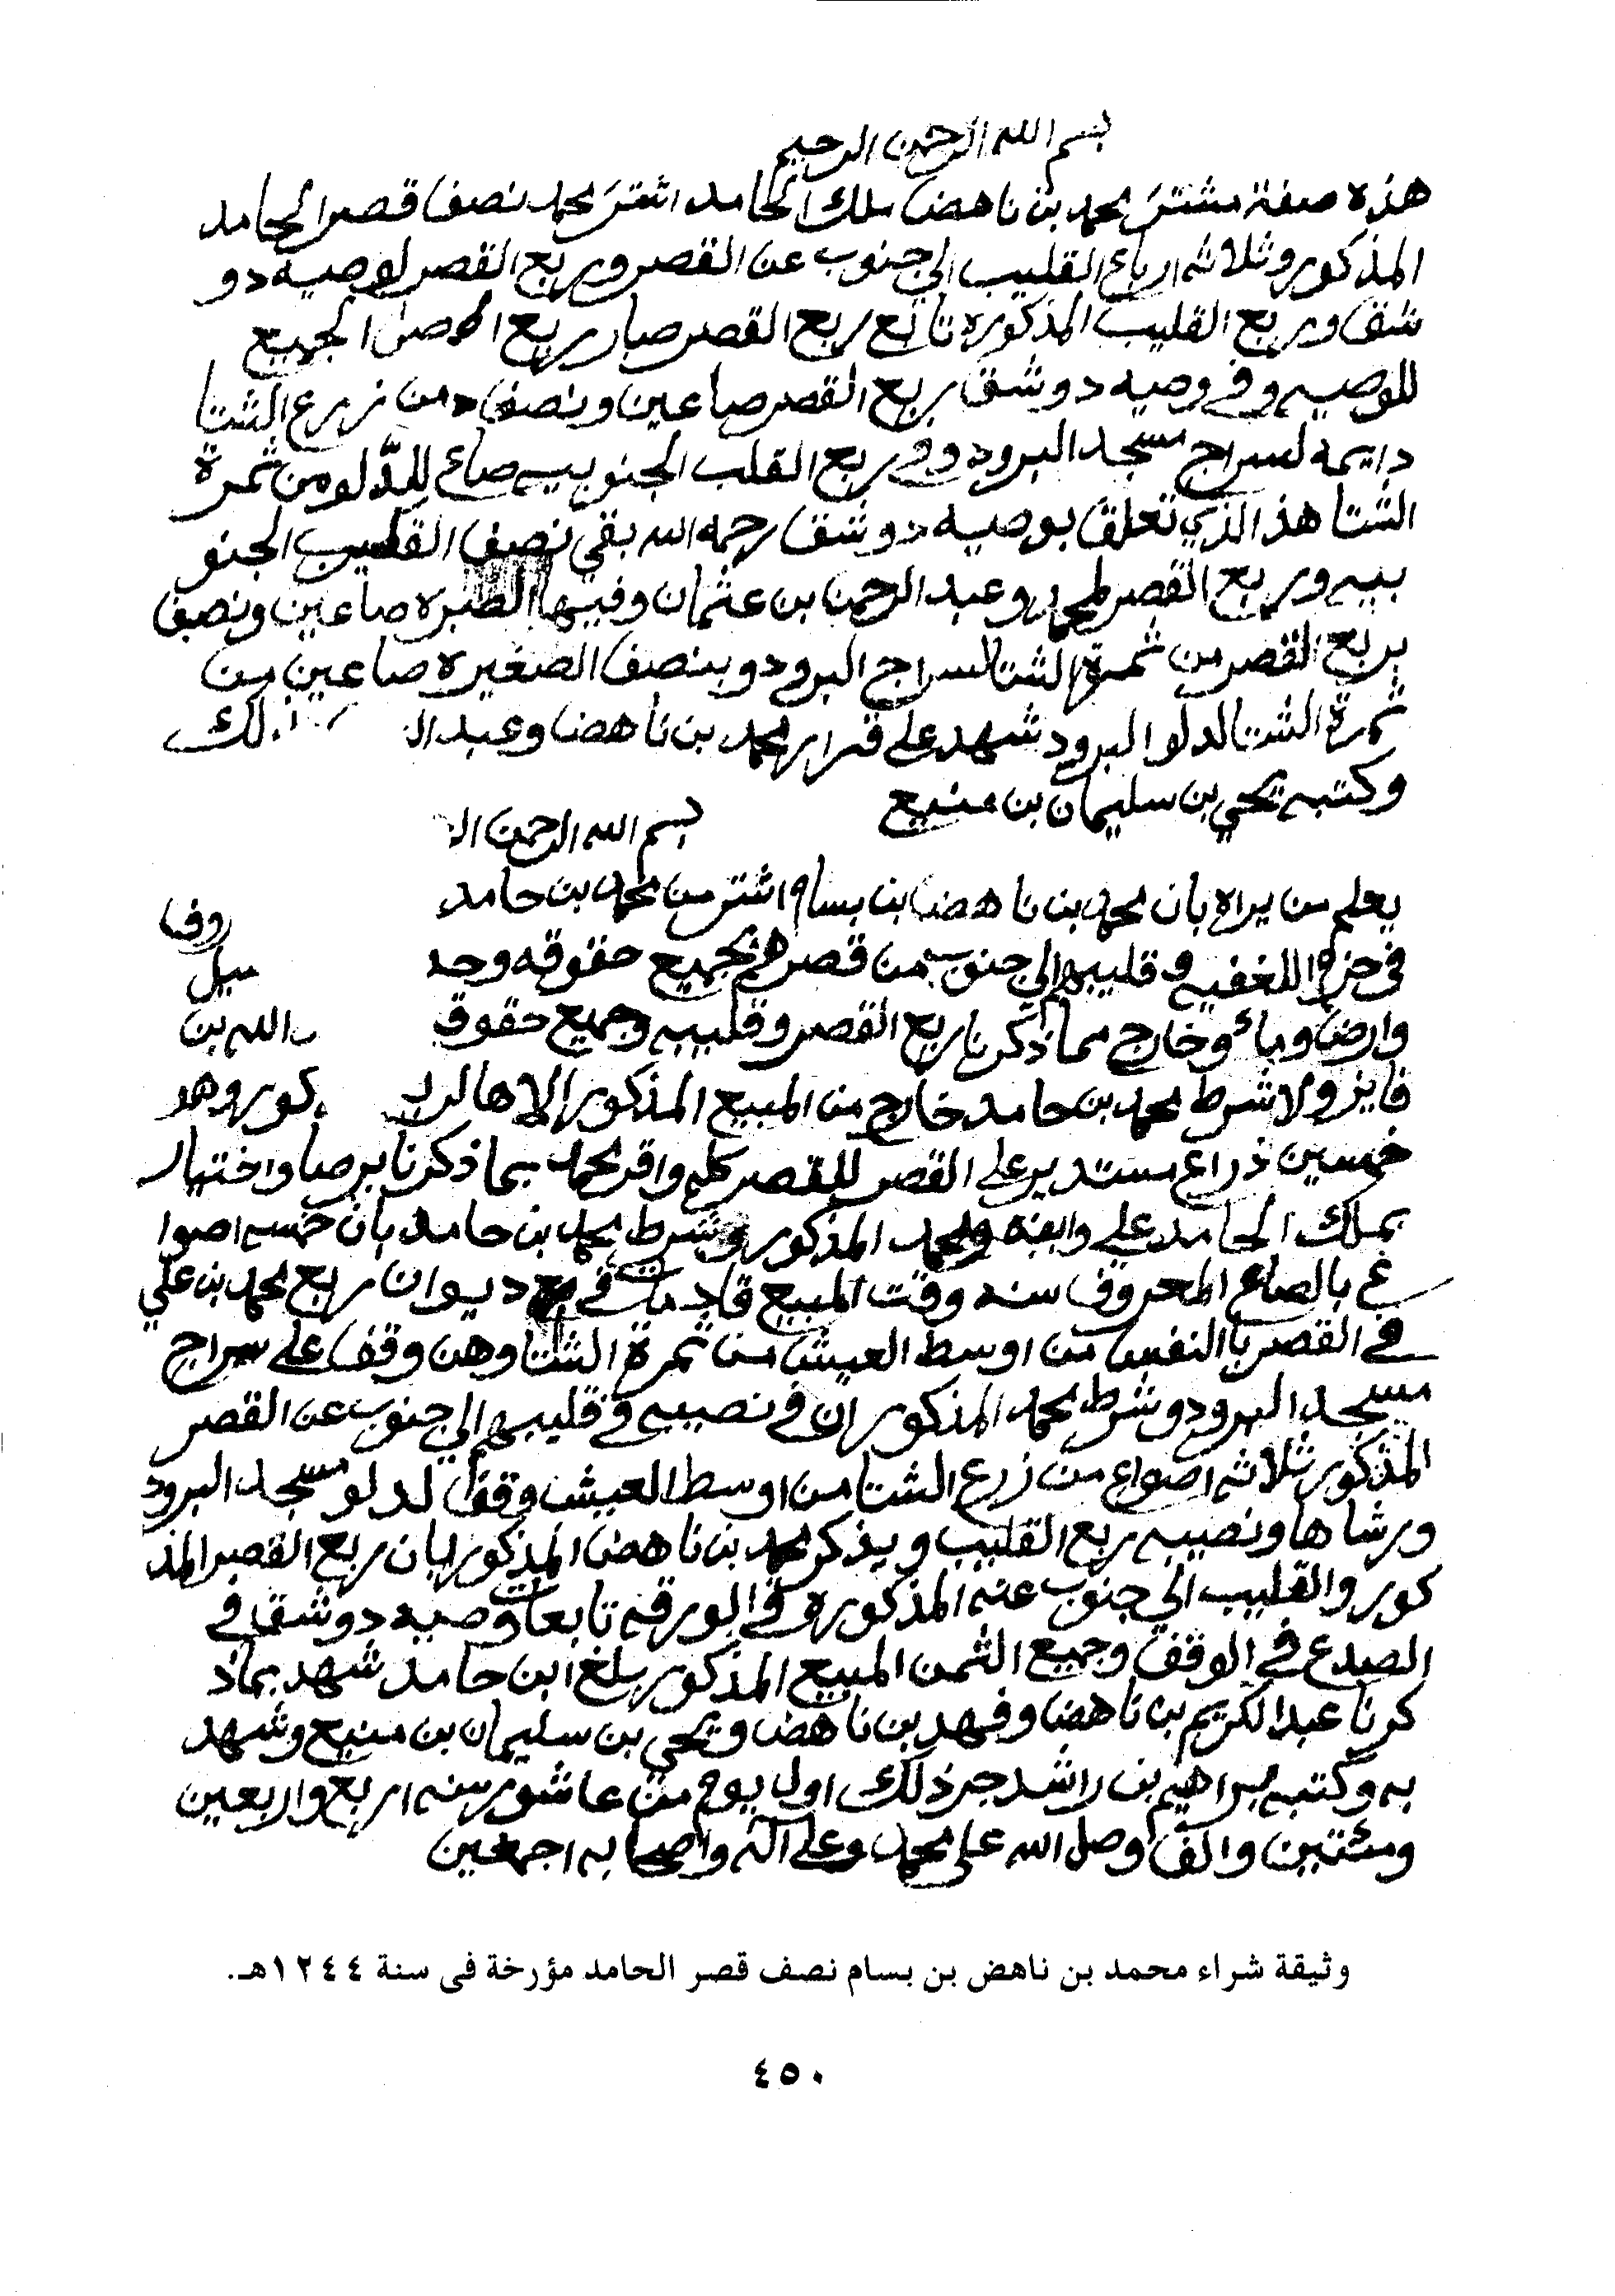 بسم الله الرحمن الرحيم
هذه صفة مشترَ محمد بن ناهض ملك الحامد اشترَ محمد نصف قصر الحامد
المذكور وثلاثه ارباع القليب الي جنوب عن القصر وربع القصر لوصيه دو
شق وربع القليب المذكوره تابع ربع القصر صار ربع الاصل الجميع
للوصيه وفي وصيه دوشق ربع القصر صاعين ونصف من زرع الشتا
دايمه لسراج مسجد البرود وفي ربع القلب الجنوبيه صاع للدَّلو من ثمرة
الشتا هذ الذي تعلق بوصيه دوشق رحمه الله بقي نصف القليب الجنو
بيه وربع القصر لمحمد وعبد الرحمن بن عثمان وفيها صاعين ونصف
بربع القصر من ثمرة الشتا لسراج البرود وبنصف الصغيره صاعين من
ثمرة الشتا لدلو البرود شهد على قرار محمد بن ناهض وعبد الـ ذلك
وكتبه يحي بن سليمان بن منيع
بسم الله الرحمن الر
يعلم من يراه بان محمد بن ناهض بن بسام اشتر من محمد بن حامد
في حزم اللغفيه وقليبهم الي جنوب من قصرهم بجميع حقوقه وحد روف
وارض وماء وخارج مما ذكرنا ربع القصر وقليبه وجميع حقوق سبيل
فايز ولا شرط محمد بن حامد خارج من المبيع المذكور الا ها لر الله بن
خمسين ذراع مستدير علي القصر للقصر كله واقر محمد بما ذكرنا برضا واختيار كور وهد
بملك الحامد علي وابنه ومحمد المذكور وشرط محمد بن حامد بان خمسه اصوا
ع بالصاع المعروف سنه وقت المبيع قادمات في ديوان ربع محمد بن علي
في القصر بالنفس من اوسط العيش من ثمرة الشتا وهن وقف على سراج
مسجد البرود وشرط محمد المذكور ان في نصيبه في قليبهم الي جنوب عن القصر
المذكور ثلاثه اصواع من زرع الشتا من اوسط العيش وقف لدلو مسجد البرود
ورشاها ونصيبه ربع القليب ويذكر محمد بن ناهض المذكور بان ربع القصر المذ
كور والقليب الي جنوب عنه المذكوره في الورقه تابعات وصيه دوشق في
الصدع في الوقف وجميع الثمن المبيع المذكور بلغ ابن حامد شهد بماذ
كرنا عبد الكريم بن ناهض وفهد بن ناهض ويحي بن سليمان بن منيع وشهد
به وكتبه براهيم بن راشد جر ذلك اول يوم من عاشور سنه اربع واربعين
ومئتين والف وصل الله على محمد وعلى آله واصحابه اجمعين
وثيقة شراء محمد بن ناهض بن بسام نصف قصر الحامد مؤرخة في سنة ١٢٤٤هـ.
٤٥٠